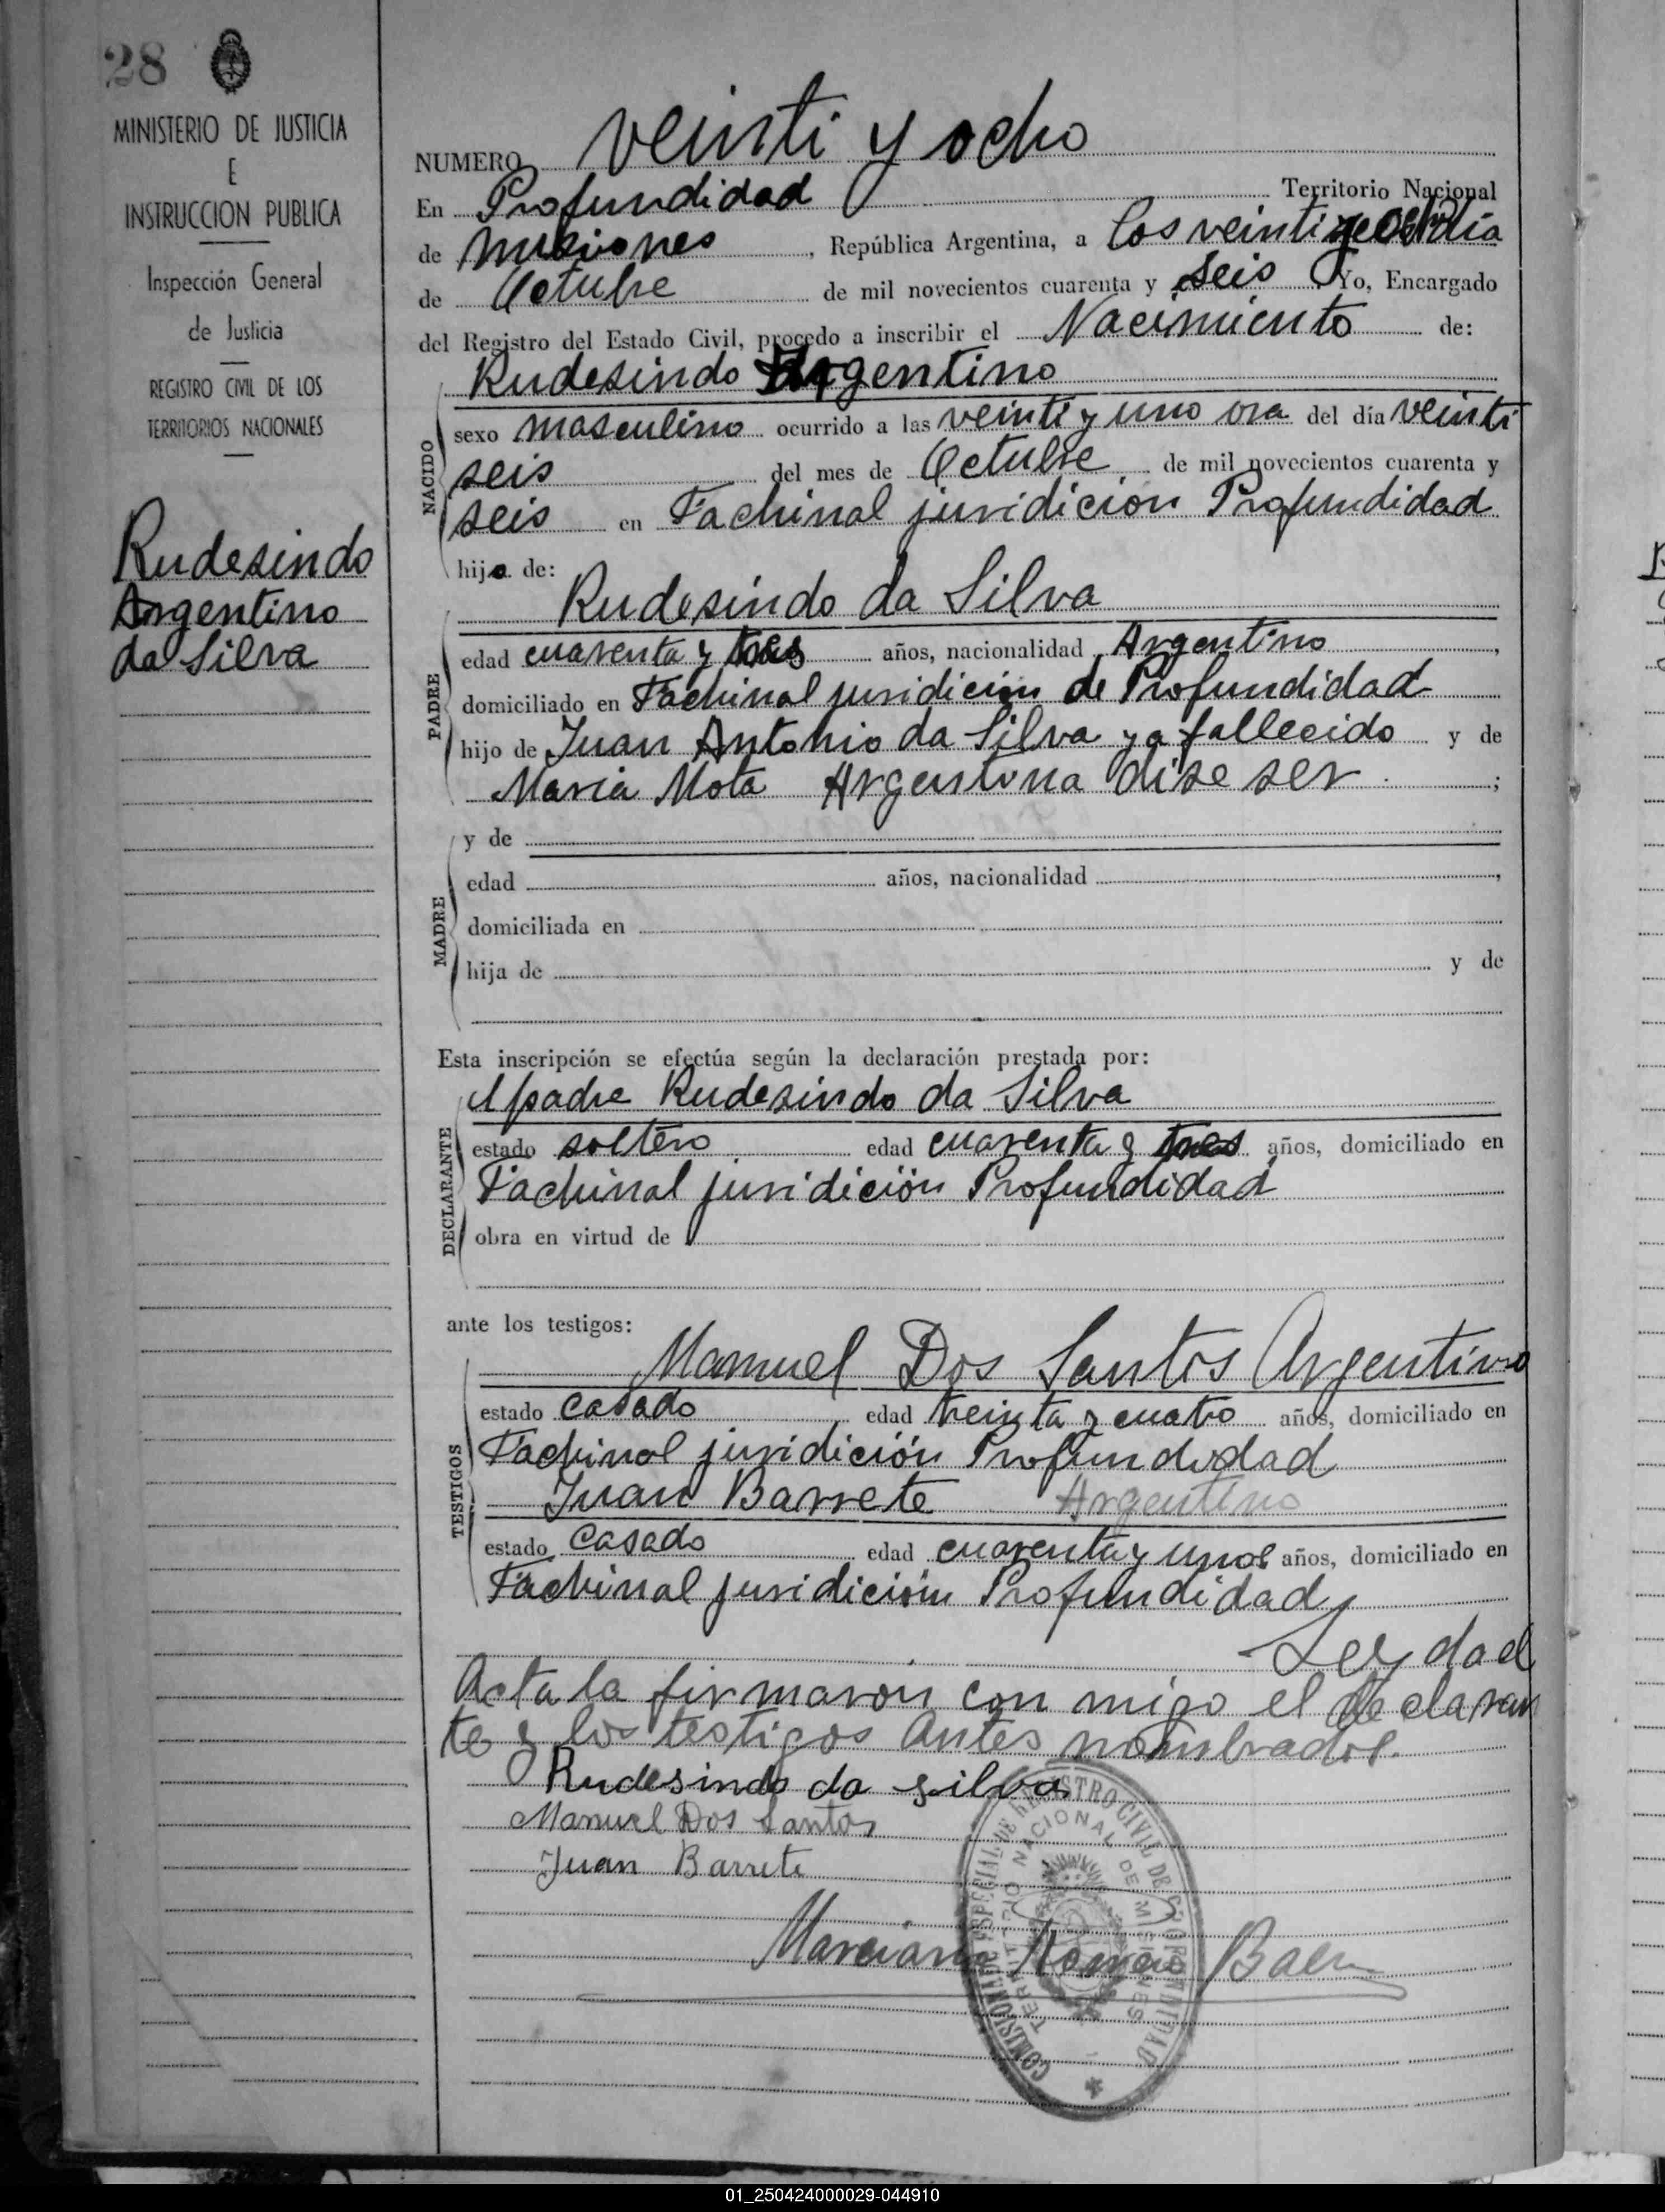 28
MINISTERIO DE JUSTICIA
E
INSTRUCCION PUBLICA
Inspección General
de Justicia
REGISTRO CIVIL DE LOS
TERRITORIOS NACIONALES
Rudesindo
Argentino
da Silva
NUMERO veinti y ocho
En Profundidad Territorio Nacional
de Misiones, República Argentina, a los veinti y ocho día
de Octubre de mil novecientos cuarenta y seis Yo, Encargado
del Registro del Estado Civil, procedo a inscribir el Nacimiento de:
NACIDO
Rudesindo Argentino
sexo masculino ocurrido a las veinti y uno ora del día veinti
seis del mes de Octubre de mil novecientos cuarenta y
seis en Fachinal juridición Profundidad
hijo de:
PADRE
Rudesindo da Silva
edad cuarenta y tres años, nacionalidad Argentino,
domiciliado en Fachinal juridición de Profundidad
hijo de Juan Antonio da Silva ya fallecido y de
Maria Mota Argentina dise ser;
MADRE
y de
edad años, nacionalidad,
domiciliada en
hija de y de
Esta inscripción se efectúa según la declaración prestada por:
DECLARANTE
el padre Rudesindo da Silva
estado soltero edad cuarenta y tres años, domiciliado en
Fachinal juridición Profundidad
obra en virtud de
ante los testigos:
TESTIGOS
Manuel Dos Santos Argentino
estado casado edad treinta y cuatro años, domiciliado en
Fachinal juridición Profundidad
Juan Barrete Argentino
estado casado edad cuarenta y unos años, domiciliado en
Fachinal juridición Profundidad
Leyda el
Acta la firmaron con migo el declaran
te y los testigos Antes nombrados.
Rudesindo da silva
Manuel Dos Santos
Juan Barrete
REGISTRO CIVIL DE
TERRITORIO NACIONAL DE MISIONES
01_250424000029-044910